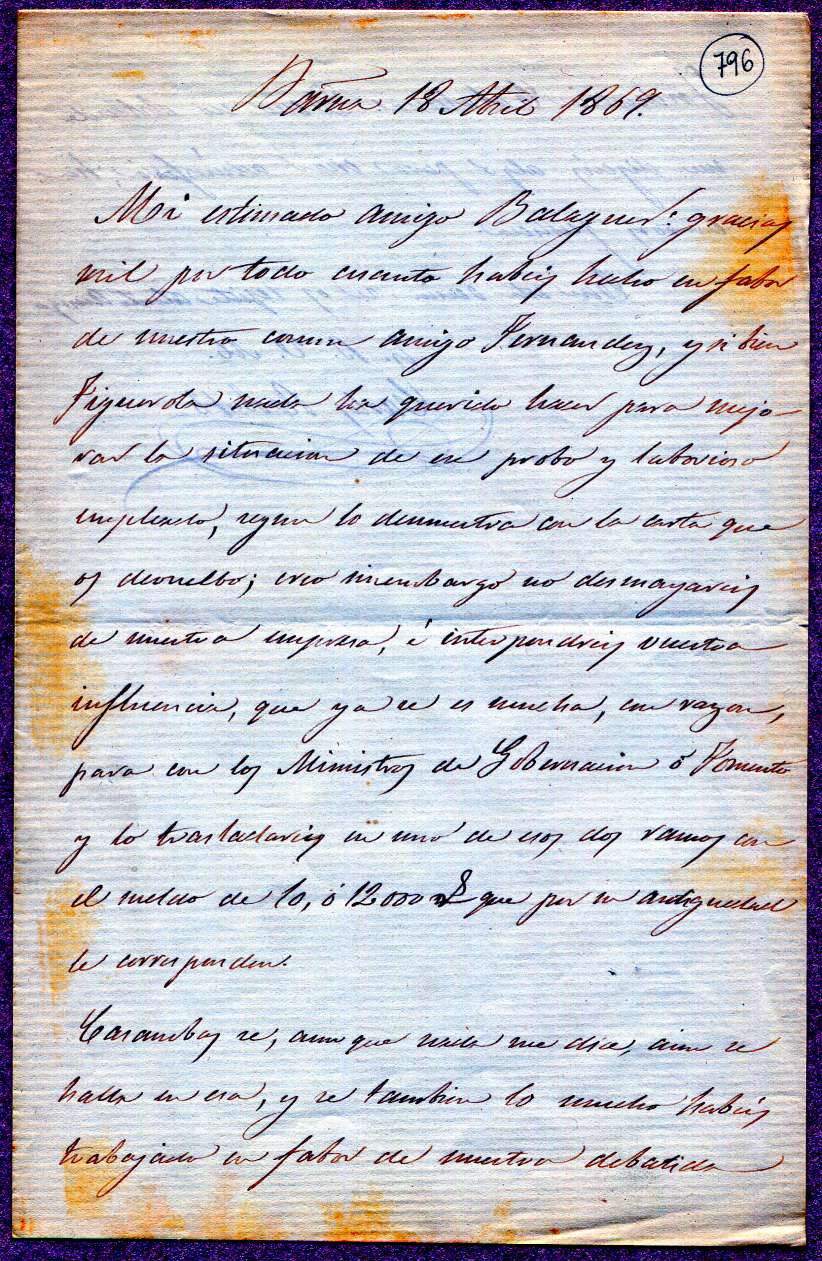 796
Barna 18 Abril 1869.
Mi estimado amigo Balaguer: gracias
mil por todo cuanto habeis hecho en fabor
de nuestro comun amigo Fernandez, y si bien
Figuerola nada ha querido hacer para mejo-
rar la situacion de ese probo y laborioso
empleado, segun lo demuestra con la carta que
os devuelbo; creo sinembargo no desmayareis
de nuestra empresa, é interpondreis vuestra
influencia, que ya se es mucha, con razon,
para con los Ministros de Gobernacion ó Fomento
y lo trasladareis en uno de esos dos ramos con
el sueldo de 10, ó 12000 rs que por su antiguedad
le corresponden.
se, aunque nada me dice, aun se
halla en esa, y se tambien lo mucho habeis
trabajado en fabor de nuestra debatida